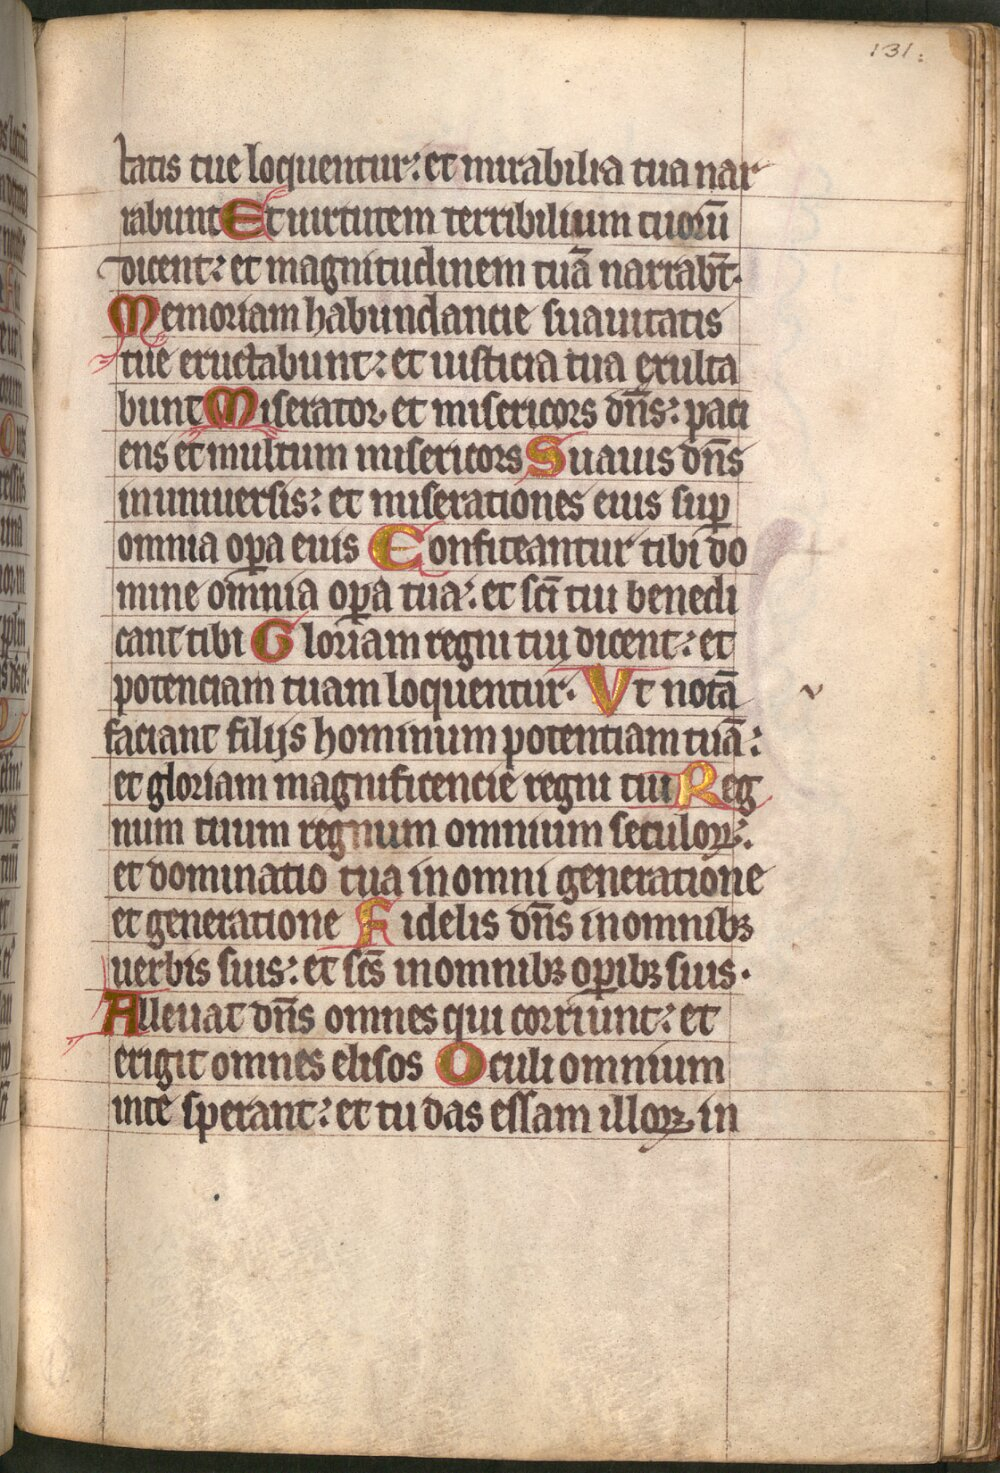 131.
tatis tue loquentur: et mirabilia tua nar
rabunt Et uirtutem terribilium tuorū
dicent: et magnitudinem tuā narrab̄t.
Memoriam habundancie suauitatis
tue eructabunt: et iusticia tua exulta
bunt Miserator et misericors dn̄s: paci
ens et multum misericors Suauis dn̄s
in uniuersis: et miserationes eius suꝑ
omnia oꝑa eius Confiteantur tibi do
mine omnia oꝑa tua: et sc̄i tui benedi
cant tibi Gloriam regni tui dicent: et
potenciam tuam loquentur. Vt notā
faciant filijs hominum potentiam tuā:
et gloriam magnificencie regni tui Reg
num tuum regnum omnium seculoꝝ:
et dominatio tua in omni generatione
et generatione Fidelis dn̄s in omnibꝫ
uerbis suis: et sc̄s in omnibꝫ oꝑibꝫ suis.
Alleuat dn̄s omnes qui corriunt: et
erigit omnes elisos Oculi omnium
in te sperant: et tu das essam illoꝝ in